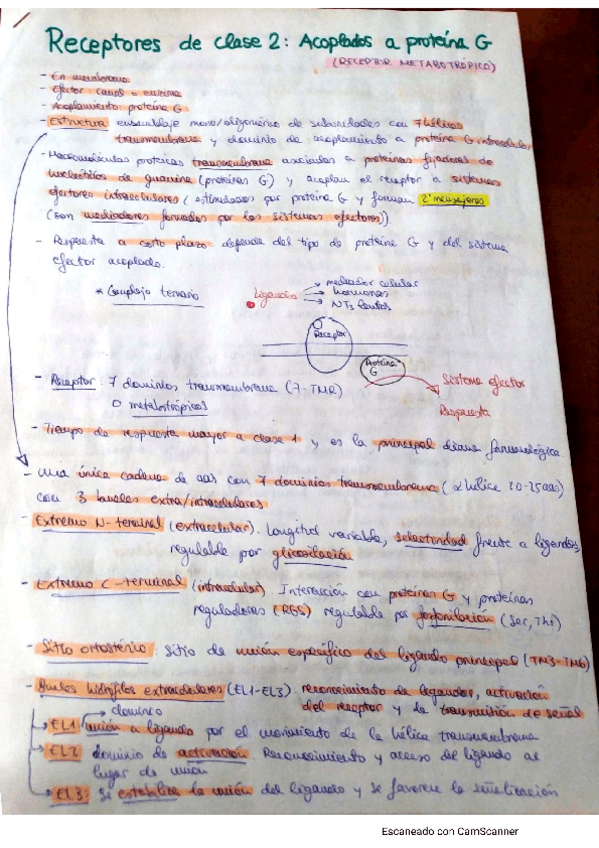 Receptores de clase 2: Acoplados a proteína G
(RECEPTOR METABOTRÓPICO)
- En membrana
- Efector: canal o enzima
- Acoplamiento: proteína G
- Estructura: ensamblaje mono/oligomérico de subunidades con 7 hélices
transmembrana y dominio de acoplamiento a proteína G intracelular
- Macromoléculas proteicas transmembrana ancladas a proteínas fijadoras de
nucleótidos de guanina (proteínas G) y acoplan el receptor a sistemas
efectores intracelulares (estimulados por proteína G y forman 2º mensajeros
(son mediadores formados por los sistemas efectores))
- Respuesta a corto plazo depende del tipo de proteína G y del sistema
efector acoplado.
* Complejo ternario
Ligando
→ mediador celular
→ hormonas
→ NTs lentos
Receptor
Proteína
G
Sistema efector
Respuesta
- Receptor: 7 dominios transmembrana (7-TMR)
metabotrópicos
- Tiempo de respuesta mayor a clase 1 y es la principal diana farmacológica.
- Una única cadena de aas con 7 dominios transmembrana (α hélice 20-25 aas)
con 3 bucles extra/intracelulares
- Extremo N-terminal (extracelular). Longitud variable, selectividad frente a ligandos,
regulable por glicosilación
- Extremo C-terminal (intracelular). Interacción con proteínas G y proteínas
reguladoras (RGS) regulable por fosforilación (Ser, Thr)
- Sitio ortostérico: sitio de unión específico del ligando principal (TM3-TM6)
- Bucles hidrófilos extracelulares (EL1-EL3): reconocimiento de ligandos, activación
del receptor y la transmisión de señal
dominio
EL1: unión a ligando por el movimiento de la hélice transmembrana
EL2: dominio de activación. Reconocimiento y acceso del ligando al
lugar de unión
EL3: Se estabiliza la unión del ligando y se favorece la señalización
Escaneado con CamScanner